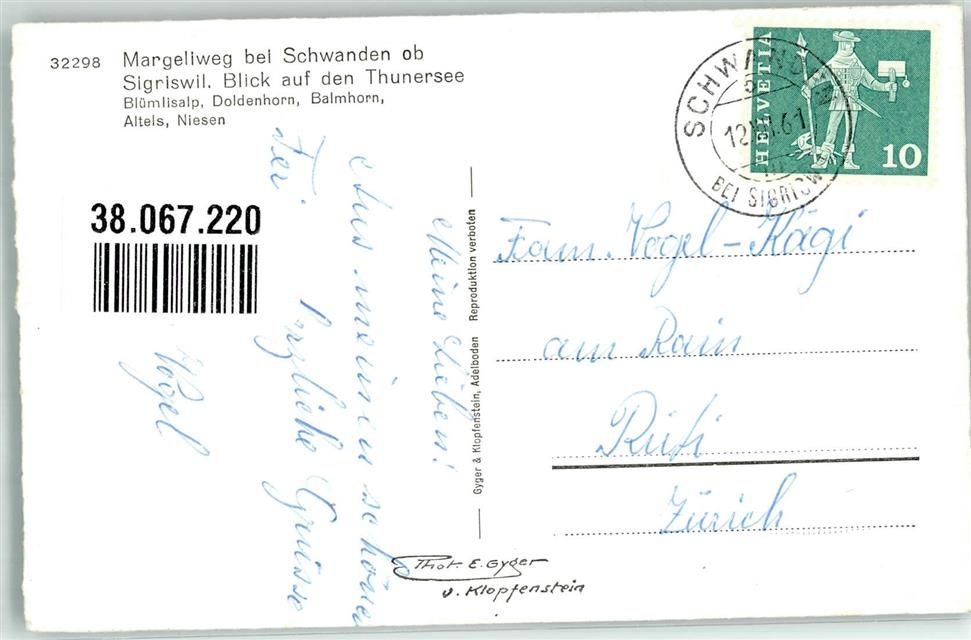 32298 Margeliweg bei Schwanden ob
Sigriswil. Blick auf den Thunersee
Blümlisalp, Doldenhorn, Balmhorn,
Altels, Niesen
38.067.220
Meine Lieben!
Aus meinen schönen
Fei
rzliche Grüsse
Vogel
Gyger & Klopfenstein, Adelboden Reproduktion verboten
Phot. E. Gyger
u. Klopfenstein
SCHWANDEN
12
61
BEI SIGRISWIL
HELVETIA
10
Fam. Vogel-Kägi
am Rain
Rüti
Zürich